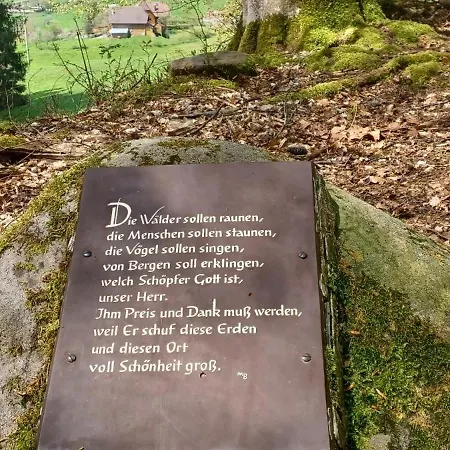 Die Wälder sollen raunen,
die Menschen sollen staunen,
die Vögel sollen singen,
von Bergen soll erklingen,
welch Schöpfer Gott ist,
unser Herr.
Ihm Preis und Dank muß werden,
weil Er schuf diese Erden
und diesen Ort
voll Schönheit groß.